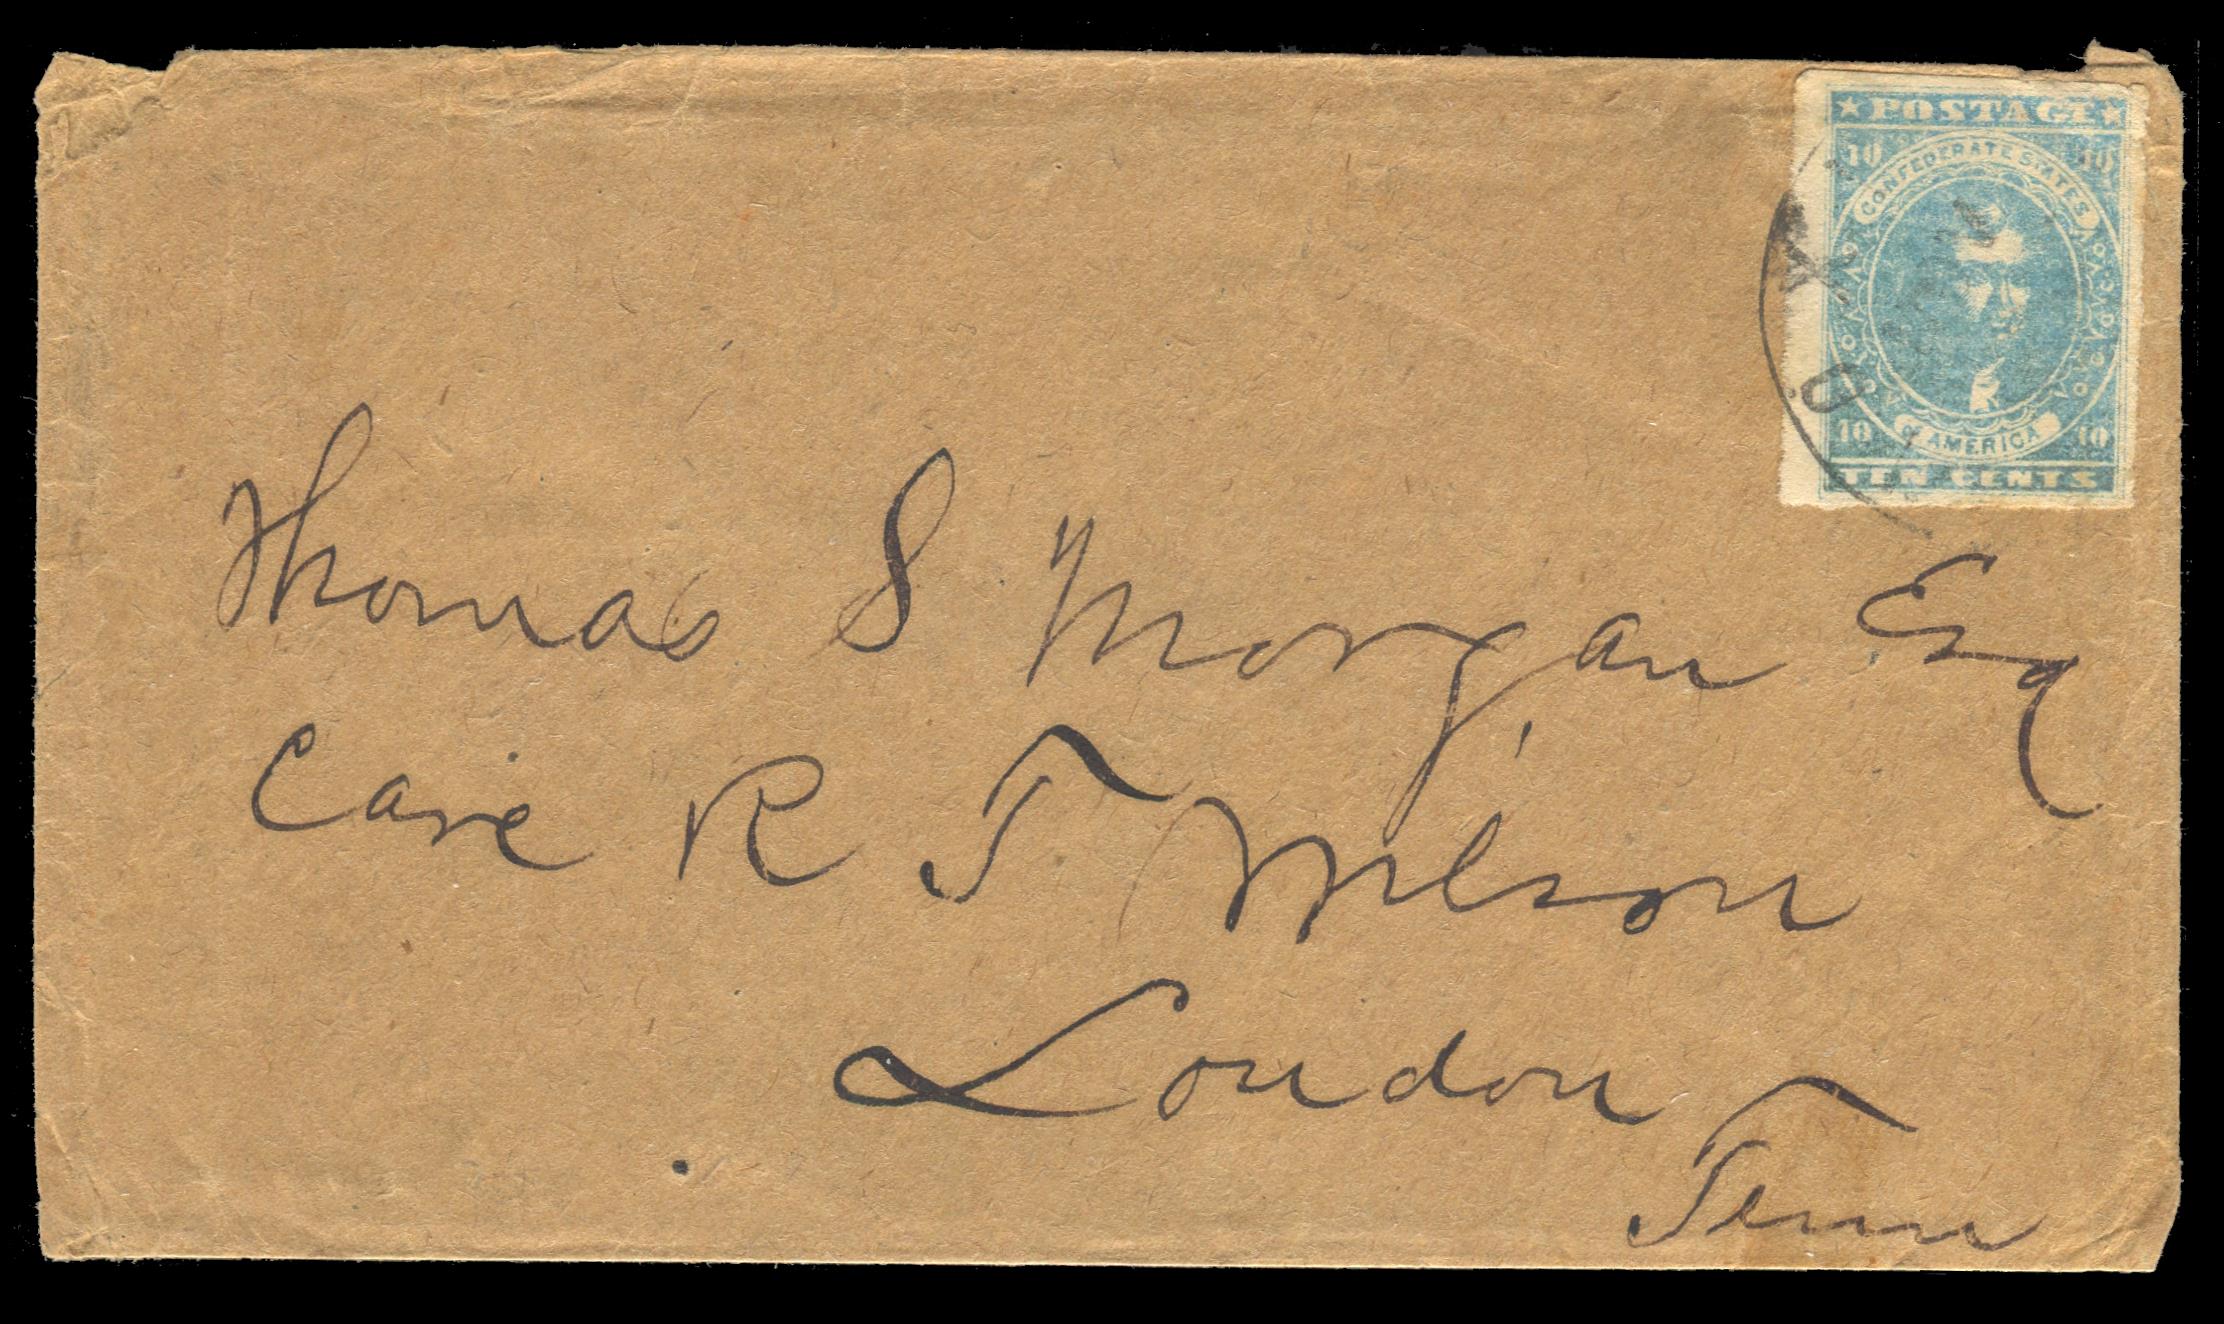 ★ POSTAGE ★
10 10
CONFEDERATE STATES
OF AMERICA
10 10
TEN CENTS
Thomas S Morgan Esq
Care R T Wilson
Loudon
Tenn